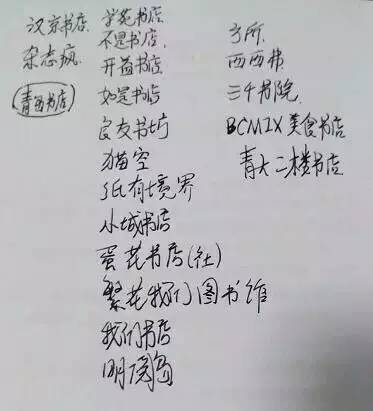 汉京书店
杂志疯
青西书店
学苑书店
不是书店
开益书店
如是书店
良友书坊
猫空
纸有境界
小城书店
书店(社)
繁花我们图书馆
我们书店
明阅岛
方所
西西弗
三千书院
BCMIX美食书店
青大二楼书店